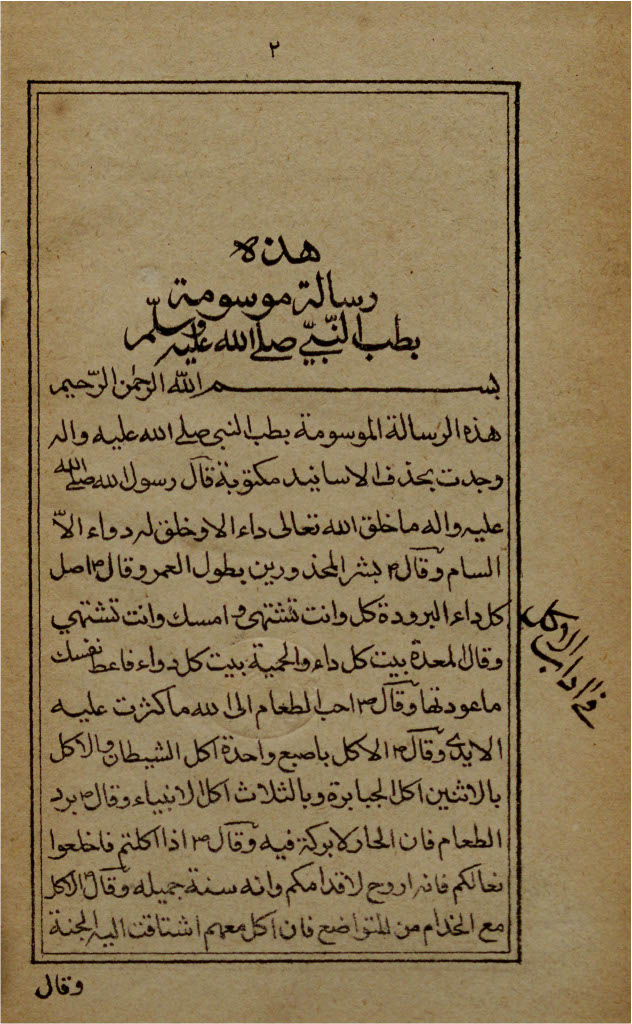 ٢
هذه
رسالة موسومة
بطب النّبيّ صلے الله عليه وسلّم
بســـــــم الله الرحمن الرّحيم
هذه الرسالة الموسومة بطب النبي صلے الله عليه واله
وجدت بحذف الاسانيد مكتوبة قال رسول الله صلے الله
عليه واله ما خلق الله تعالى داء الا وخلق له دواء الاّ
السام وقال م بشر المحذورين بطول العمر وقال م اصل
كل داء البرودة كل وانت تشتهى و امسك وانت تشتهي
وقال المعدة بيت كل داء والحمية بيت كل دواء فاعط نفسك
ما عودتها وقال م احب الطعام الى الله ما كثرت عليه
الايدي وقال م الاكل باصبع واحدة اكل الشيطان والاكل
بالاثنين اكل الجبابرة وبالثلاث اكل الانبياء وقال م برد
الطعام فان الحار لا بركة فيه وقال م اذا اكلتم فاخلعوا
نعالكم فانه اروح لاقدامكم وانه سنة جميله وقال م الاكل
مع الخدام من المتواضع فان اكل معهم اشتاقت اليه الجنة
في اداب الاكل
وقال